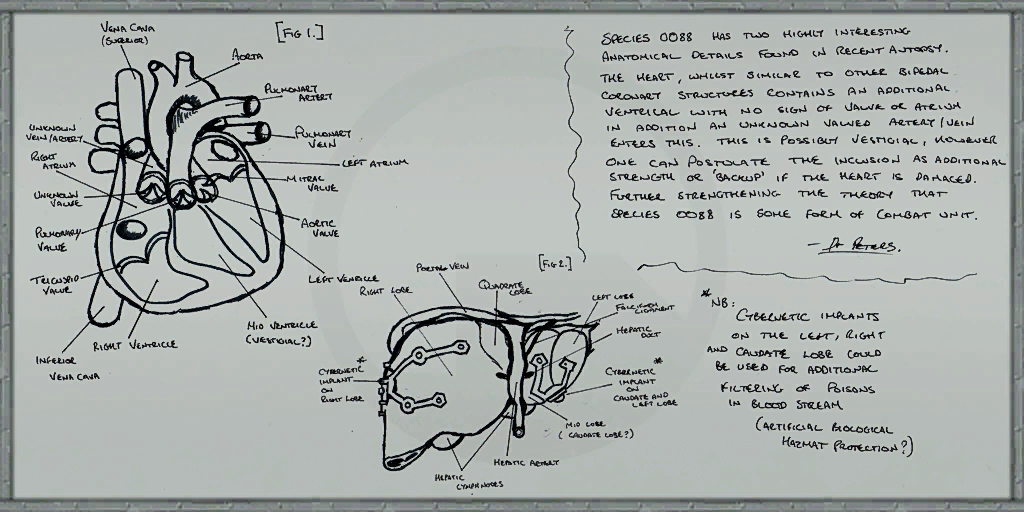 [FIG 1.]
VENA CAVA
(SUPERIOR)
AORTA
PULMONARY
ARTERY
UNKNOWN
VEIN/ARTERY
PULMONARY
VEIN
RIGHT
ATRIUM
LEFT ATRIUM
MITRAL
VALVE
UNKNOWN
VALVE
AORTIC
VALVE
PULMONARY
VALVE
TRICUSPID
VALVE
LEFT VENTRICLE
MID VENTRICLE
(VESTIGIAL?)
RIGHT VENTRICLE
INFERIOR
VENA CAVA
SPECIES 0088 HAS TWO HIGHLY INTERESTING
ANATOMICAL DETAILS FOUND IN RECENT AUTOPSY.
THE HEART, WHILST SIMILAR TO OTHER BIPEDAL
CORONARY STRUCTURES CONTAINS AN ADDITIONAL
VENTRICAL WITH NO SIGN OF VALVE OR ATRIUM
IN ADDITION AN UNKNOWN VALVED ARTERY/VEIN
ENTERS THIS. THIS IS POSSIBLY VESTIGIAL, HOWEVER
ONE CAN POSTULATE THE INCLUSION AS ADDITIONAL
STRENGTH OR 'BACKUP' IF THE HEART IS DAMAGED.
FURTHER STRENGTHENING THE THEORY THAT
SPECIES 0088 IS SOME FORM OF COMBAT UNIT.
- DR PETERS.
[FIG 2.]
PORTAL VEIN
RIGHT LOBE
QUADRATE
LOBE
LEFT LOBE
FALCIFORM
LIGAMENT
HEPATIC
DUCT
*
CYBERNETIC
IMPLANT
ON
RIGHT LOBE
*
CYBERNETIC
IMPLANT
ON
CAUDATE AND
LEFT LOBE
MID LOBE
(CAUDATE LOBE?)
HEPATIC ARTERY
HEPATIC
LYMPHNODES
* NB:
CYBERNETIC IMPLANTS
ON THE LEFT, RIGHT
AND CAUDATE LOBE COULD
BE USED FOR ADDITIONAL
FILTERING OF POISONS
IN BLOOD STREAM
(ARTIFICIAL BIOLOGICAL
HAZMAT PROTECTION?)